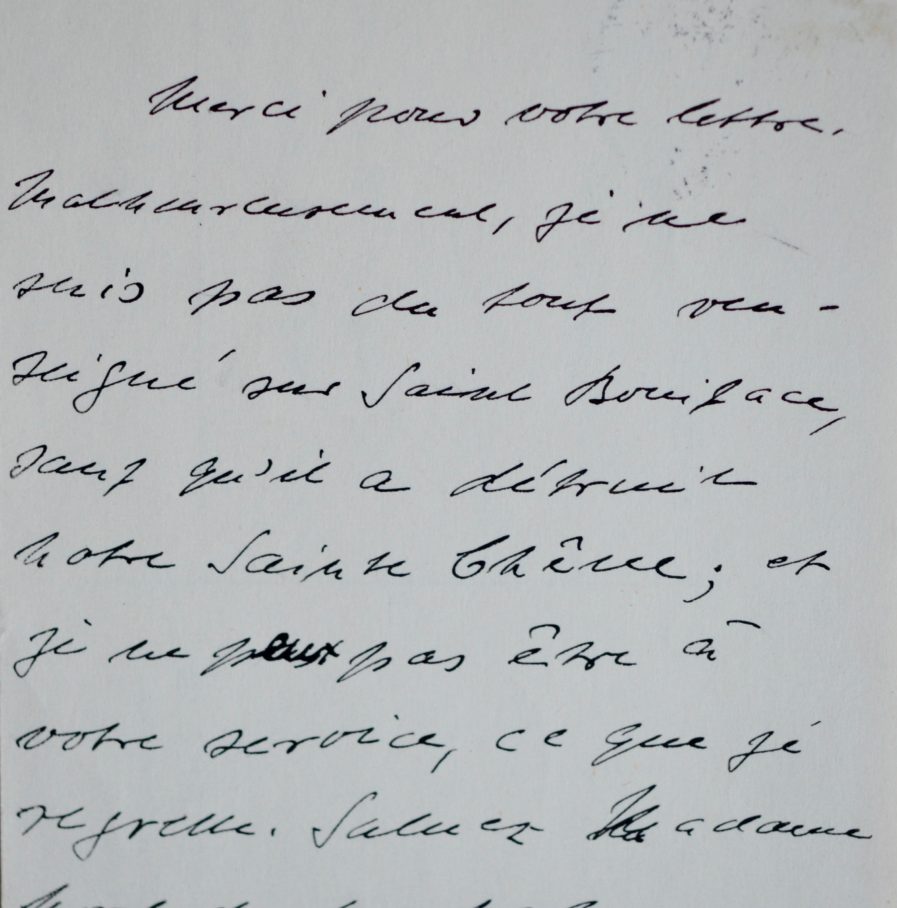 Merci pour votre lettre.
Malheureusement, je ne
suis pas du tout ren-
seigné sur Saint Boniface,
sauf qu'il a détruit
notre Sainte Chêne; et
je ne peux pas être à
votre service, ce que je
regrette. Saluez Madame